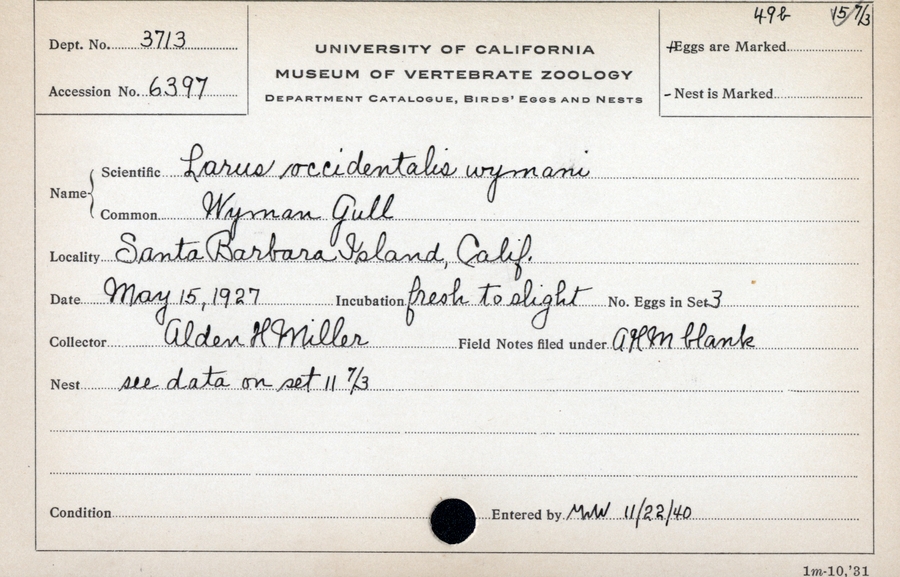 49b 15 7/3
Dept. No. 3713
UNIVERSITY OF CALIFORNIA
MUSEUM OF VERTEBRATE ZOOLOGY
DEPARTMENT CATALOGUE, BIRDS' EGGS AND NESTS
Accession No. 6397
+Eggs are Marked
- Nest is Marked
Name { Scientific Larus occidentalis wymani
Common Wyman Gull
Locality Santa Barbara Island, Calif.
Date May 15, 1927 Incubation fresh to slight No. Eggs in Set 3
Collector Alden H Miller Field Notes filed under AHM blank
Nest see data on set 11 7/3
Condition Entered by MW 11/22/40
1m-10,'31